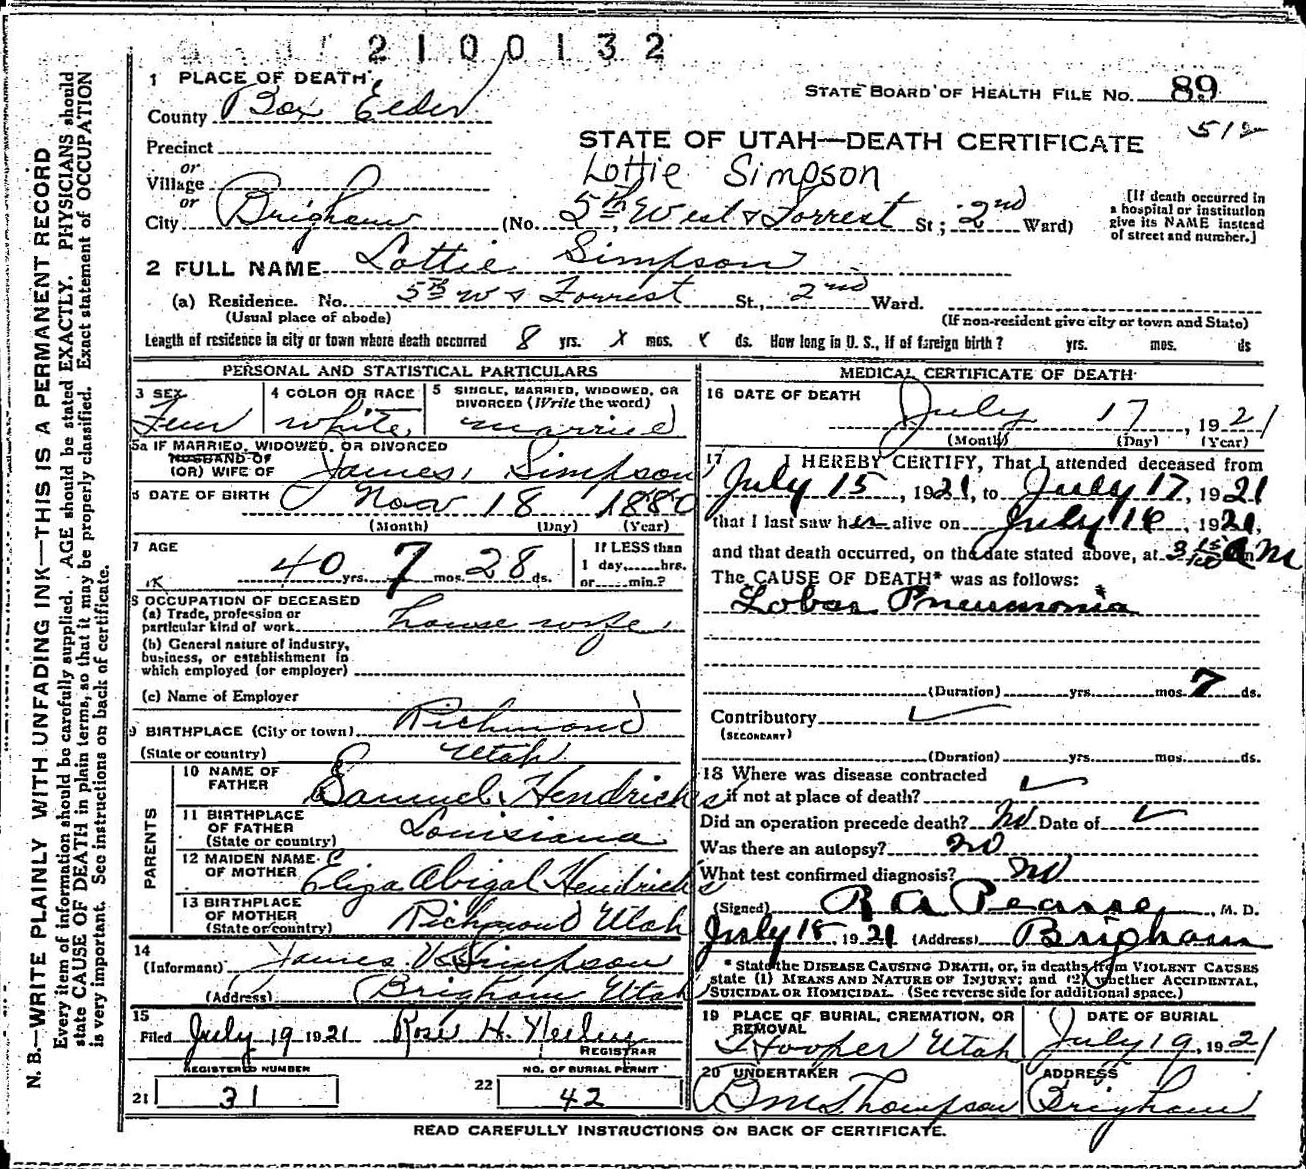 2100132
1 PLACE OF DEATH
County Box Elder
STATE BOARD OF HEALTH FILE No. 89
512
Precinct
STATE OF UTAH—DEATH CERTIFICATE
or
Village
Lottie Simpson
or
City Brigham (No. 5th West & Forrest St; 2nd Ward)
[If death occurred in
a hospital or institution
give its NAME instead
of street and number.]
2 FULL NAME Lottie Simpson
(a) Residence. No. 5th W & Forrest St., 2nd Ward.
(Usual place of abode)
(If non-resident give city or town and State)
Length of residence in city or town where death occurred 8 yrs. x mos. x ds. How long in U. S., if of foreign birth? yrs. mos. ds
PERSONAL AND STATISTICAL PARTICULARS
3 SEX Fem
4 COLOR OR RACE white
5 SINGLE, MARRIED, WIDOWED, OR
DIVORCED (Write the word)
married
5a IF MARRIED, WIDOWED, OR DIVORCED
HUSBAND OF
(OR) WIFE OF James Simpson
6 DATE OF BIRTH Nov 18 1880
(Month) (Day) (Year)
7 AGE
40 yrs. 7 mos. 28 ds.
If LESS than
1 day,......hrs.
or......min.?
8 OCCUPATION OF DECEASED
(a) Trade, profession or
particular kind of work house wife
(b) General nature of industry,
business, or establishment in
which employed (or employer)
(c) Name of Employer
9 BIRTHPLACE (City or town) Richmond
(State or country) Utah
PARENTS
10 NAME OF
FATHER Samuel Hendricks
11 BIRTHPLACE
OF FATHER
(State or country) Louisiana
12 MAIDEN NAME
OF MOTHER Eliza Abigal Hendricks
13 BIRTHPLACE
OF MOTHER
(State or country) Richmond Utah
14
(Informant) James V Simpson
(Address) Brigham Utah
15
Filed July 19 1921 Rose H.
REGISTRAR
REGISTERED NUMBER
21 31
NO. OF BURIAL PERMIT
22 42
MEDICAL CERTIFICATE OF DEATH
16 DATE OF DEATH
July 17, 1921
(Month) (Day) (Year)
17 I HEREBY CERTIFY, That I attended deceased from
July 15, 1921, to July 17, 1921
that I last saw her alive on July 16, 1921,
and that death occurred, on the date stated above, at 3 15 a m
The CAUSE OF DEATH* was as follows:
Lobar Pneumonia
(Duration) yrs. mos. 7 ds.
Contributory
(SECONDARY)
(Duration) yrs. mos. ds.
18 Where was disease contracted
if not at place of death?
Did an operation precede death? No Date of
Was there an autopsy? no
What test confirmed diagnosis? no
(Signed) R A Pearse, M. D.
July 18, 1921 (Address) Brigham
* State the DISEASE CAUSING DEATH, or, in deaths from VIOLENT CAUSES
state (1) MEANS AND NATURE OF INJURY; and (2) whether ACCIDENTAL,
SUICIDAL OR HOMICIDAL. (See reverse side for additional space.)
19 PLACE OF BURIAL, CREMATION, OR
REMOVAL
Hooper Utah
DATE OF BURIAL
July 19, 1921
20 UNDERTAKER
D M Thompson
ADDRESS
Brigham
READ CAREFULLY INSTRUCTIONS ON BACK OF CERTIFICATE.
N. B.—WRITE PLAINLY WITH UNFADING INK—THIS IS A PERMANENT RECORD
Every item of information should be carefully supplied. AGE should be stated EXACTLY. PHYSICIANS should
state CAUSE OF DEATH in plain terms, so that it may be properly classified. Exact statement of OCCUPATION
is very important. See instructions on back of certificate.